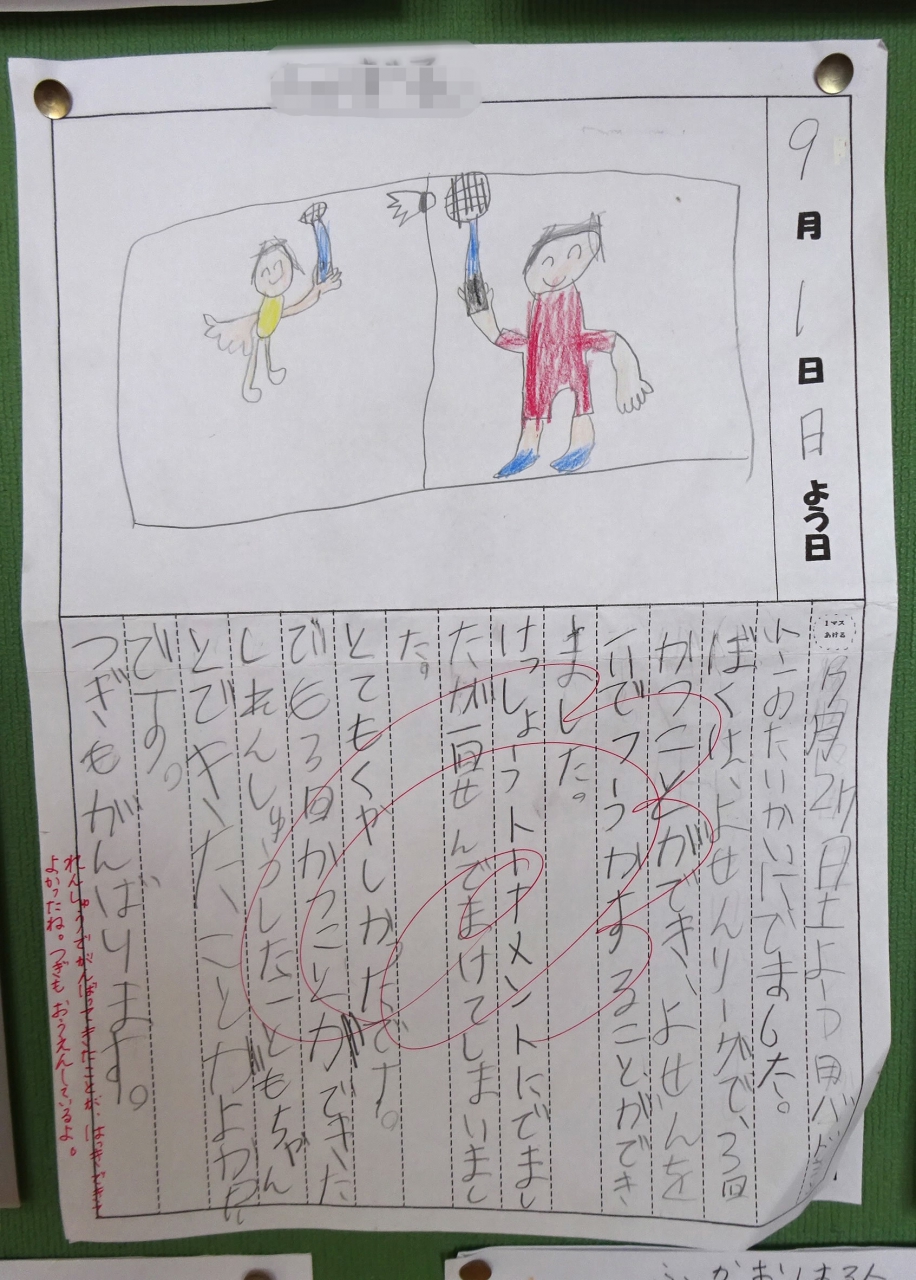 9月1日日よう日
1マスあける
月2日土よう日バドミ
トンのたいかいにでました。
ぼくは、よせんリーグで、3回
かつことができ、よせんを
一いでつうかすることができ
ました。
けっしょうトーナメントにでまし
たが一回せんでまけてしまいまし
た。
とてもくやしかったです。
でも3回かつことができた
しれんしゅうしたこともちゃん
とできたことがよかった
です。
つぎもがんばります。
れんしゅうをがんばってきたことが、はっきできて
よかったね。つぎもおうえんしているよ。